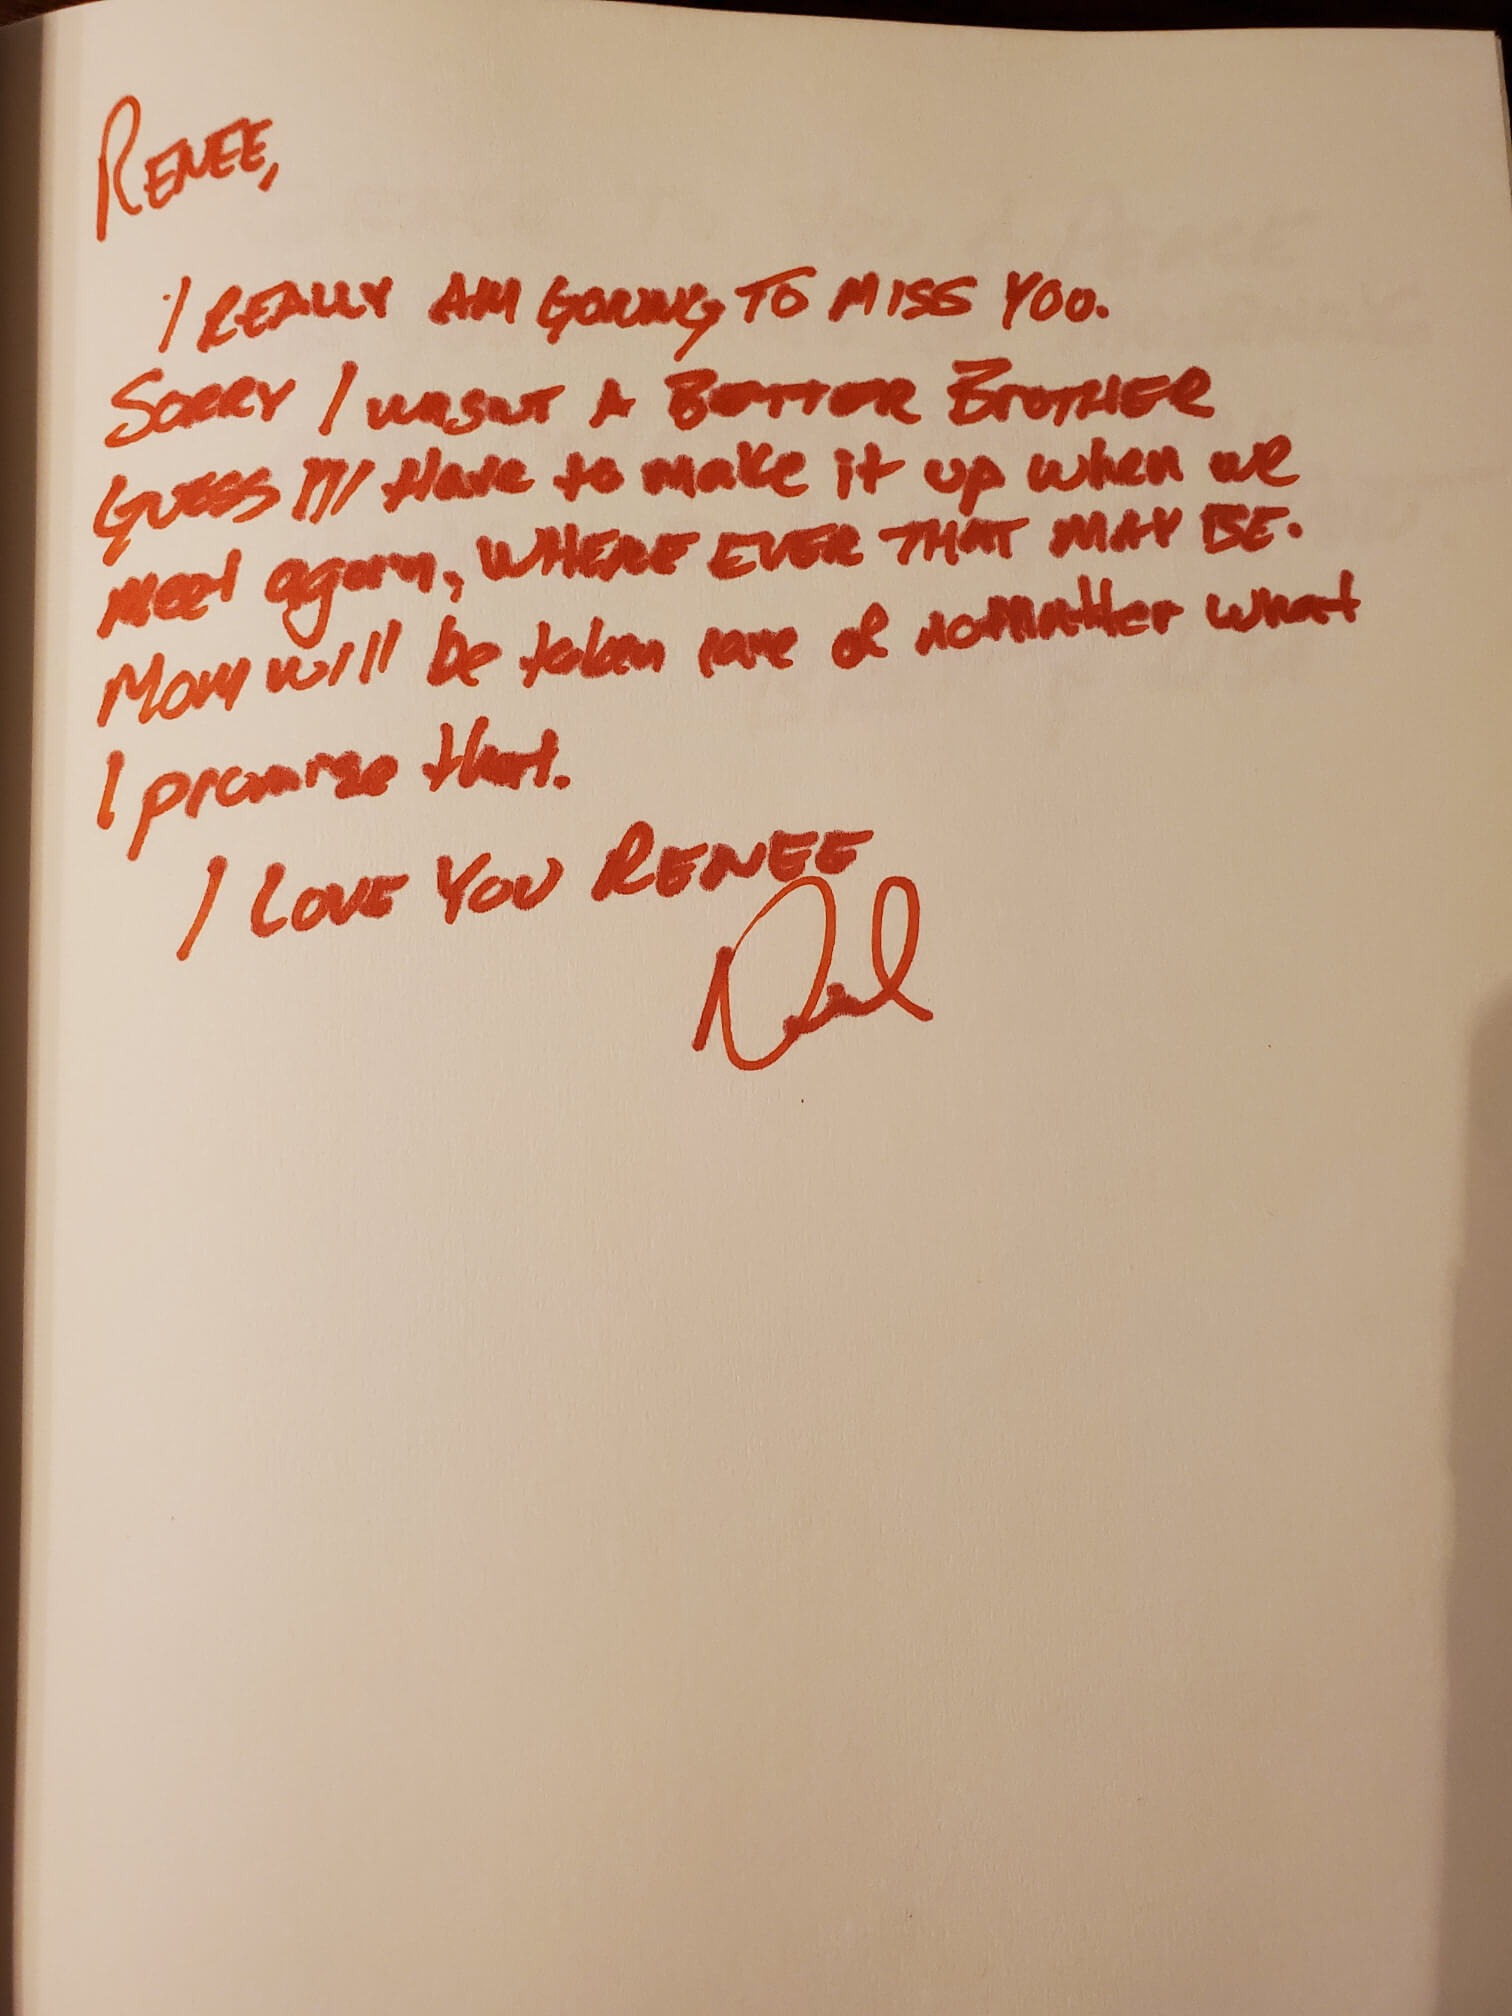 RENEE,
I REALLY AM GOING TO MISS YOU.
SORRY I WASNT A BETTER BROTHER
GUESS I'll Have to make it up when we
meet again, WHERE EVER THAT MAY BE.
Mom will be taken care of nomatter what
I promise that.
I LOVE YOU RENEE